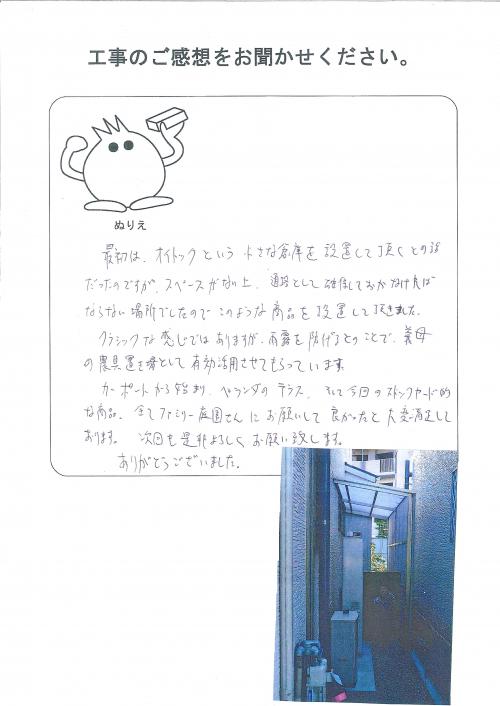 工事のご感想をお聞かせください。
ぬりえ
最初は、オイトックという小さな倉庫を設置して頂くとの話
だったのですが、スペースがない上、通路として確保しておかなければ
ならない場所でしたのでこのような商品を設置して頂きました。
クラシックな感じではありますが、雨露を防げるとのことで、義母
の農具置き場として有効活用させてもらっています。
カーポートから始まり、ベランダのテラス、そして今回のストックヤード的
な商品、全てファミリー庭園さんにお願いして良かったと大変満足して
おります。次回も是非よろしくお願い致します。
ありがとうございました。